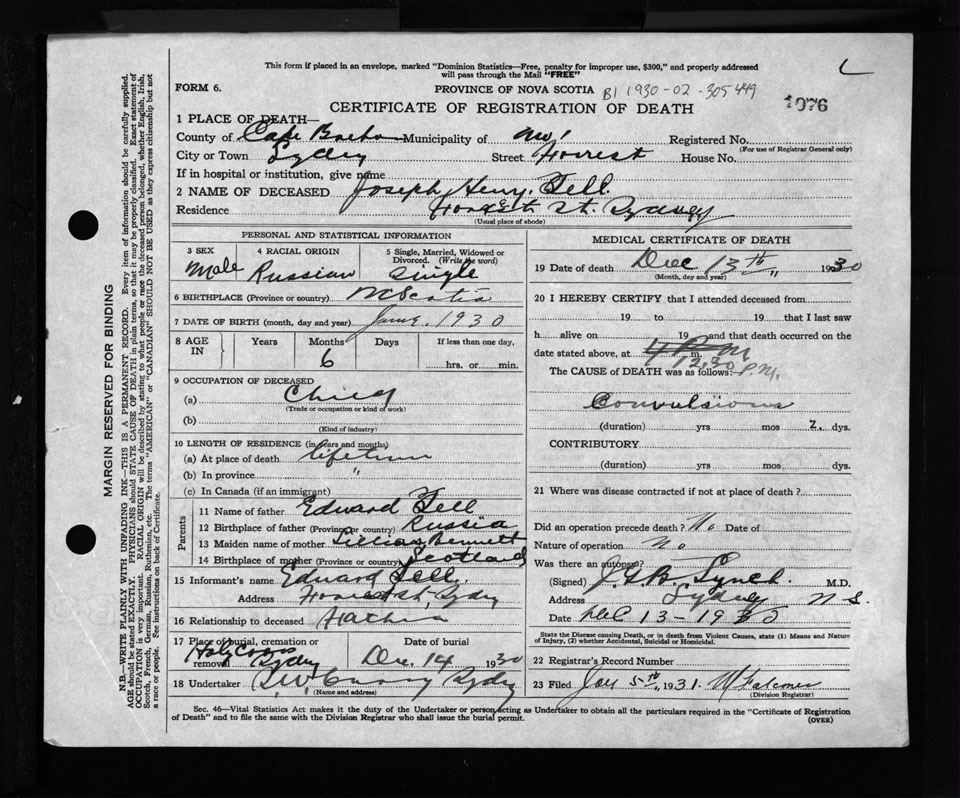 This form if placed in an envelope, marked "Dominion Statistics—Free, penalty for improper use, $300," and properly addressed
will pass through the Mail "FREE"
FORM 6.
PROVINCE OF NOVA SCOTIA B1 1930-02-305449
1076
CERTIFICATE OF REGISTRATION OF DEATH
1 PLACE OF DEATH—
County of Cape Breton Municipality of Registered No.
(For use of Registrar General only)
City or Town Sydney Street Forrest House No.
If in hospital or institution, give name
2 NAME OF DECEASED Joseph Henry Fell.
Residence Forrest St. Sydney
(Usual place of abode)
PERSONAL AND STATISTICAL INFORMATION
3 SEX Male
4 RACIAL ORIGIN Russian
5 Single, Married, Widowed or Divorced. (Write the word) Single
6 BIRTHPLACE (Province or country) N Scotia
7 DATE OF BIRTH (month, day and year) June 1930
8 AGE IN Years Months Days If less than one day,
6 hrs. or min.
9 OCCUPATION OF DECEASED
(a) Child
(Trade or occupation or kind of work)
(b)
(Kind of industry)
10 LENGTH OF RESIDENCE (in years and months)
(a) At place of death lifetime
(b) In province "
(c) In Canada (if an immigrant)
Parents
11 Name of father Edward Fell
12 Birthplace of father (Province or country) Russia
13 Maiden name of mother Lillian Bennett
14 Birthplace of mother (Province or country) Scotland
15 Informant's name Edward Fell.
Address Forrest St, Sydney
16 Relationship to deceased Father
17 Place of burial, cremation or removal Holy Cross Sydney
Date of burial Dec. 14 1930
18 Undertaker Sydney
(Name and address)
MEDICAL CERTIFICATE OF DEATH
19 Date of death Dec 13th, 1930
(Month, day and year)
20 I HEREBY CERTIFY that I attended deceased from
19 to 19 that I last saw
h alive on 19 and that death occurred on the
date stated above, at m. 12.30 P.M.
The CAUSE of DEATH was as follows:—
Convulsions
(duration) yrs mos 2 dys.
CONTRIBUTORY
(duration) yrs mos dys.
21 Where was disease contracted if not at place of death?
Did an operation precede death? No Date of
Nature of operation No
Was there an autopsy?
(Signed) Lynch. M.D.
Address Sydney N S.
Date Dec 13-1930
State the Disease causing Death, or in death from Violent Causes, state (1) Means and Nature
of Injury, (2) whether Accidental, Suicidal or Homicidal.
22 Registrar's Record Number
23 Filed Jan 5th, 1931.
(Division Registrar)
Sec. 46—Vital Statistics Act makes it the duty of the Undertaker or person acting as Undertaker to obtain all the particulars required in the "Certificate of Registration
of Death" and to file the same with the Division Registrar who shall issue the burial permit.
(OVER)
MARGIN RESERVED FOR BINDING
N.B.—WRITE PLAINLY WITH UNFADING INK—THIS IS A PERMANENT RECORD. Every item of information should be carefully supplied.
AGE should be stated EXACTLY. PHYSICIANS should STATE CAUSE OF DEATH in plain terms, so that it may be properly classified. Exact statement of
OCCUPATION is very important. RACIAL ORIGIN will be described by stating to what people or race the deceased person belonged, whether English, Irish,
Scotch, French, German, Russian, Ruthenian, etc. The terms "AMERICAN" or "CANADIAN" SHOULD NOT BE USED as they express citizenship but not
a race or people. See instructions on back of Certificate.